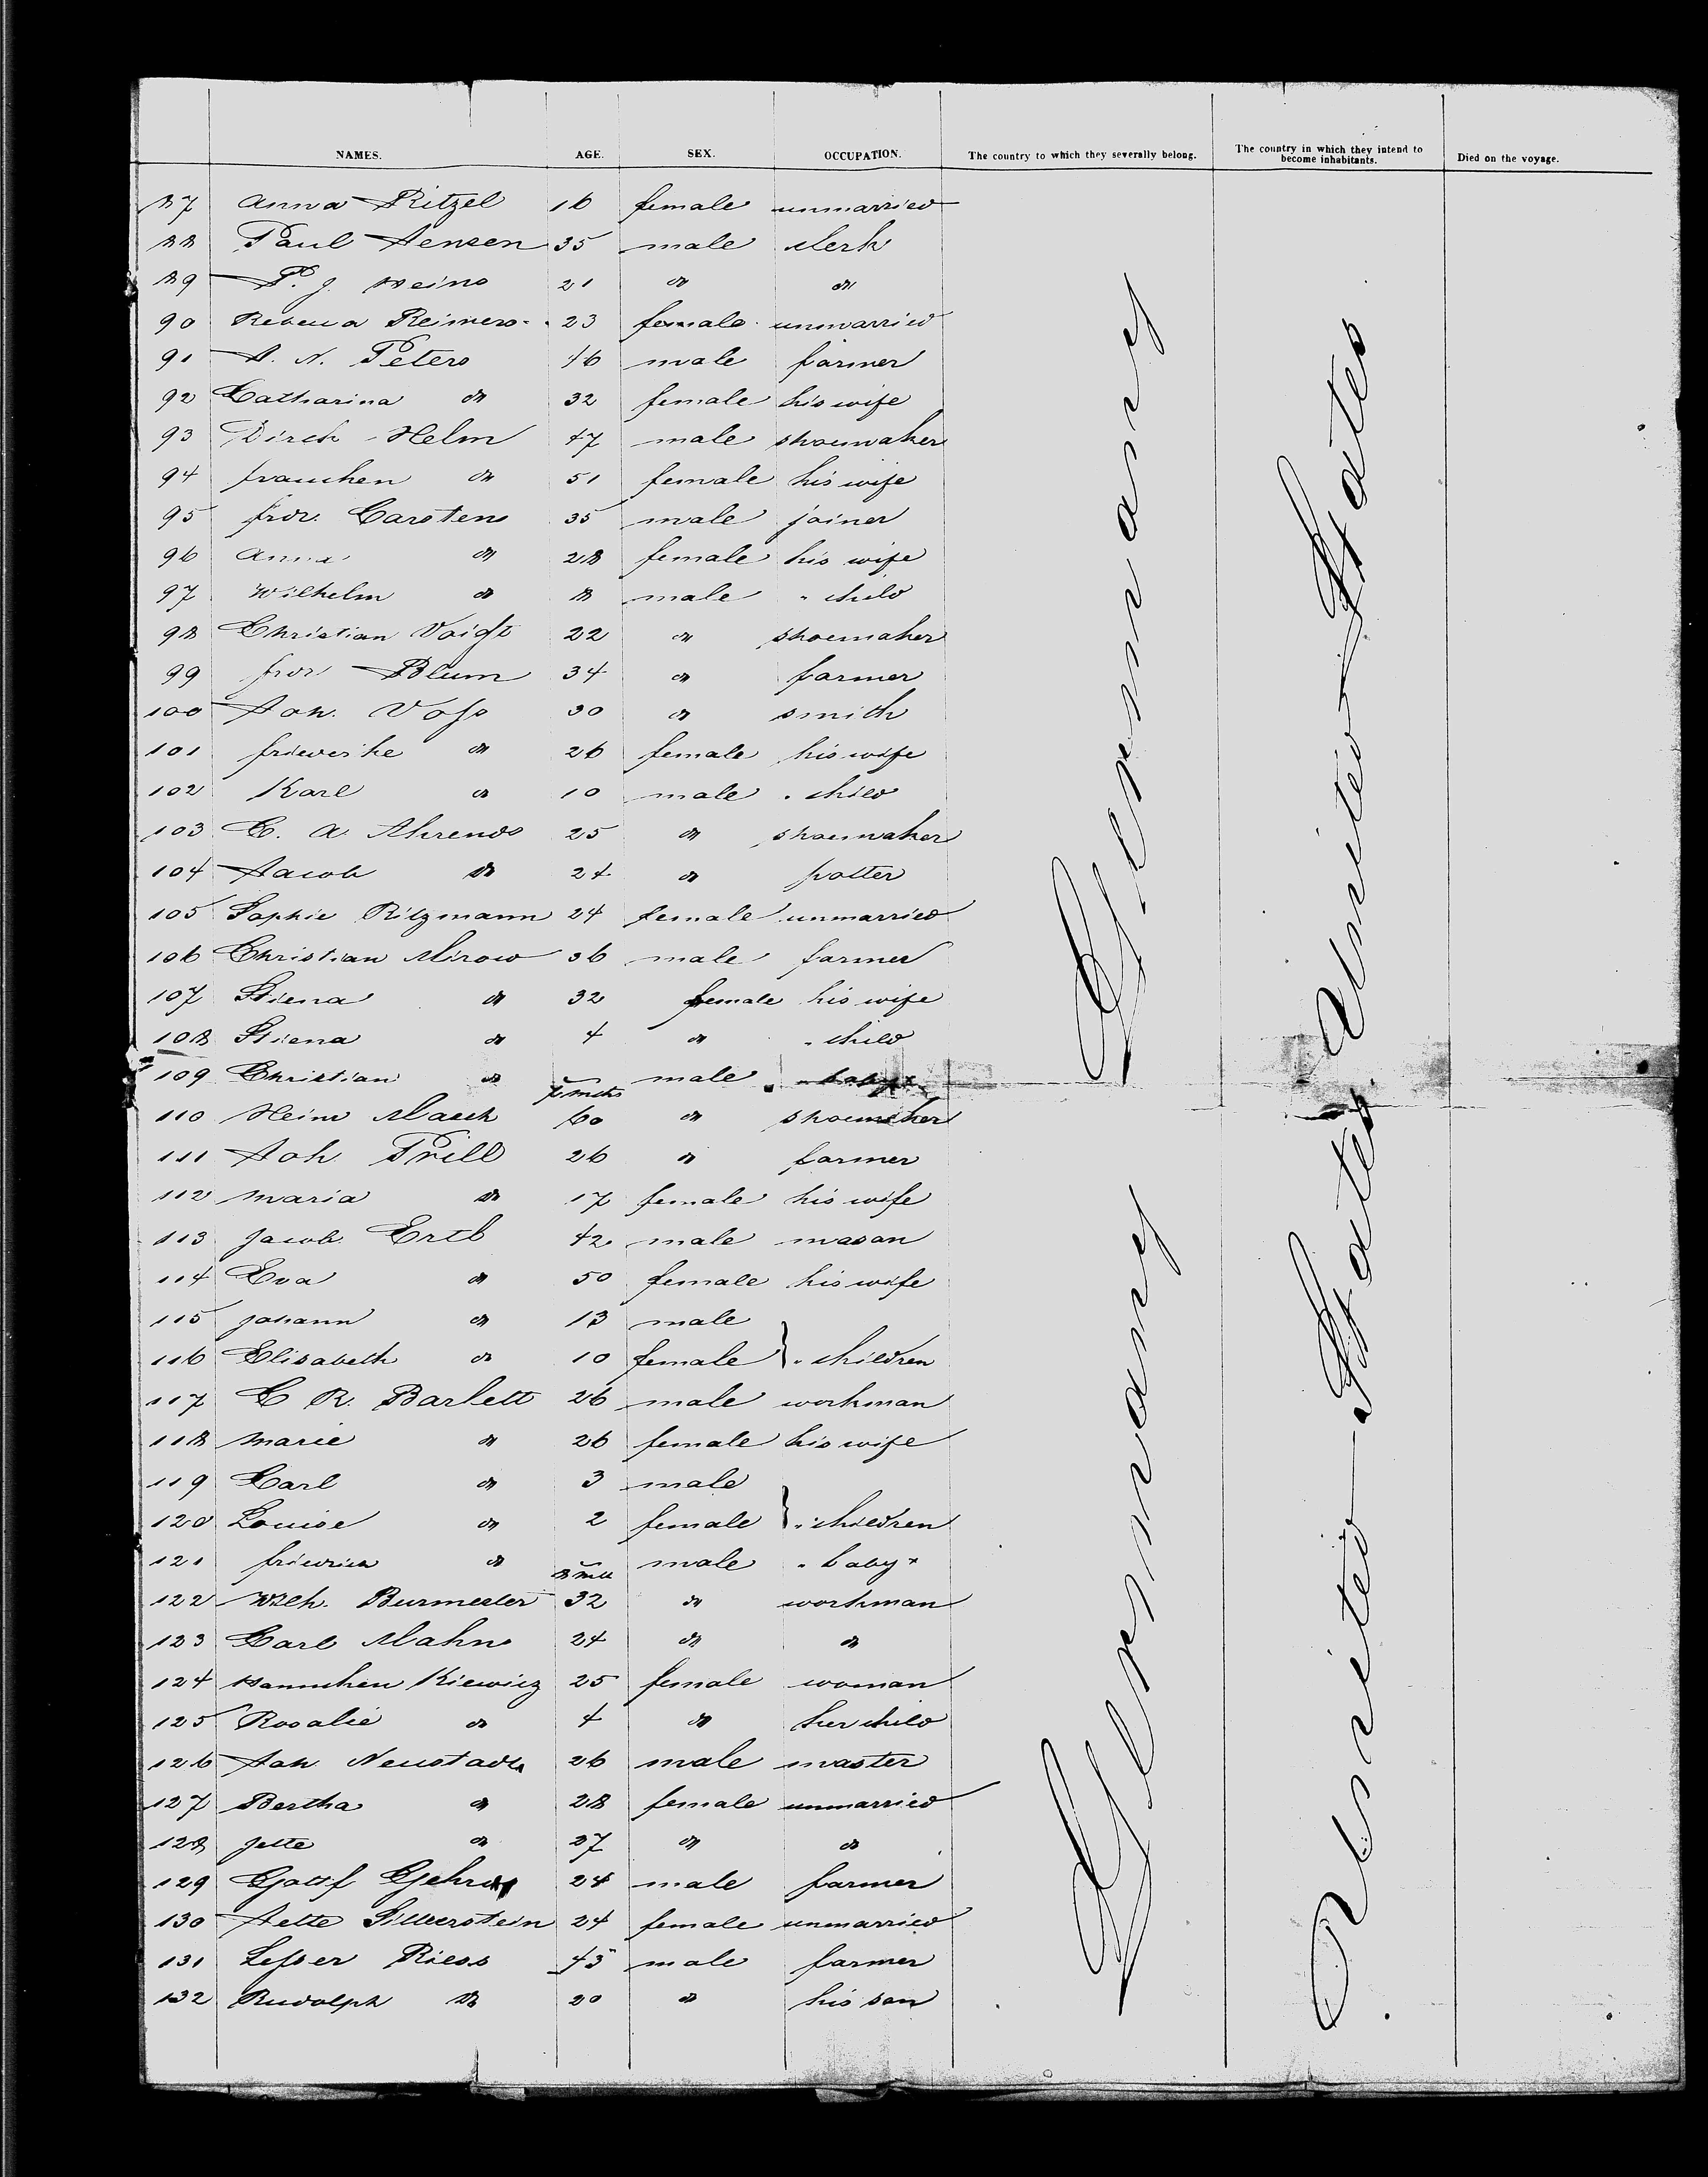 NAMES. AGE. SEX. OCCUPATION. The country to which they severally belong. The country in which they intend to become inhabitants. Died on the voyage.
87 Anna Ritzel 16 female unmarried
88 Paul Jensen 35 male clerk
89 P. J. Heins 21 do do
90 Rebecca Reimers 23 female unmarried
91 J. N. Peters 46 male farmer
92 Catharina do 32 female his wife
93 Dirck Helm 47 male shoemaker
94 Frauchen do 51 female his wife
95 Frdr. Carstens 35 male joiner
96 Anna do 28 female his wife
97 Wilhelm do 8 male " child
98 Christian Voigt 22 do shoemaker
99 Frdr Blum 34 do farmer
100 Joh. Voss 30 do smith
101 Friederike do 26 female his wife
102 Karl do 10 male " child
103 C. A. Ahrends 25 do shoemaker
104 Jacob do 24 do potter
105 Sophie Ritzmann 24 female unmarried
106 Christian Mirow 36 male farmer
107 Stiena do 32 female his wife
108 Stiena do 4 do " child
109 Christian do 7 mths male " baby x
110 Heinr Maech 60 do shoemaker
111 Joh. Prill 26 do farmer
112 Maria do 17 female his wife
113 Jacob Ertl 42 male mason
114 Eva do 50 female his wife
115 Johann do 13 male
116 Elisabeth do 10 female } " children
117 C R. Barlett 26 male workman
118 Marie do 26 female his wife
119 Carl do 3 male
120 Louise do 2 female } " children
121 Friedrich do 8 mth male " baby x
122 Wilh. Burmester 32 do workman
123 Carl Mahn 24 do do
124 Hannchen Kiewicz 25 female woman
125 Rosalie do 4 do her child
126 Joh. Neustadt 26 male master
127 Bertha do 28 female unmarried
128 Jette do 27 do do
129 Gottf 24 male farmer
130 Jette Silberstein 24 female unmarried
131 Lesser Riess 43 male farmer
132 Rudolph do 20 do his son
Germany
United States
Germany
United States